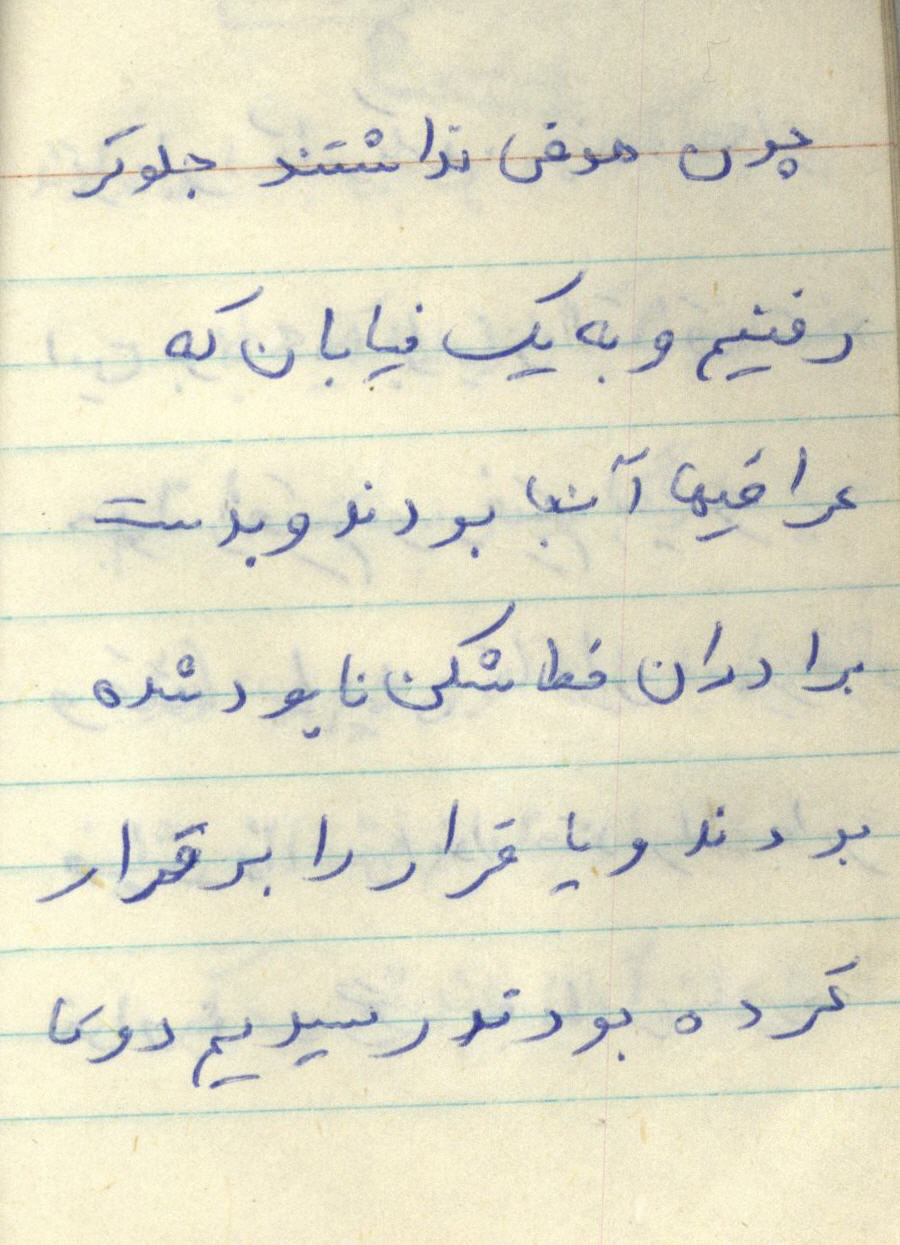 چون هوض نداشتند جلوتر
رفتیم و به یک خیابان که
عراقیها آنجا بودند و بدست
برادران خط شکن نابود شده
بودند و یا قرار را بر قرار
کرده بودند رسیدیم دوتا